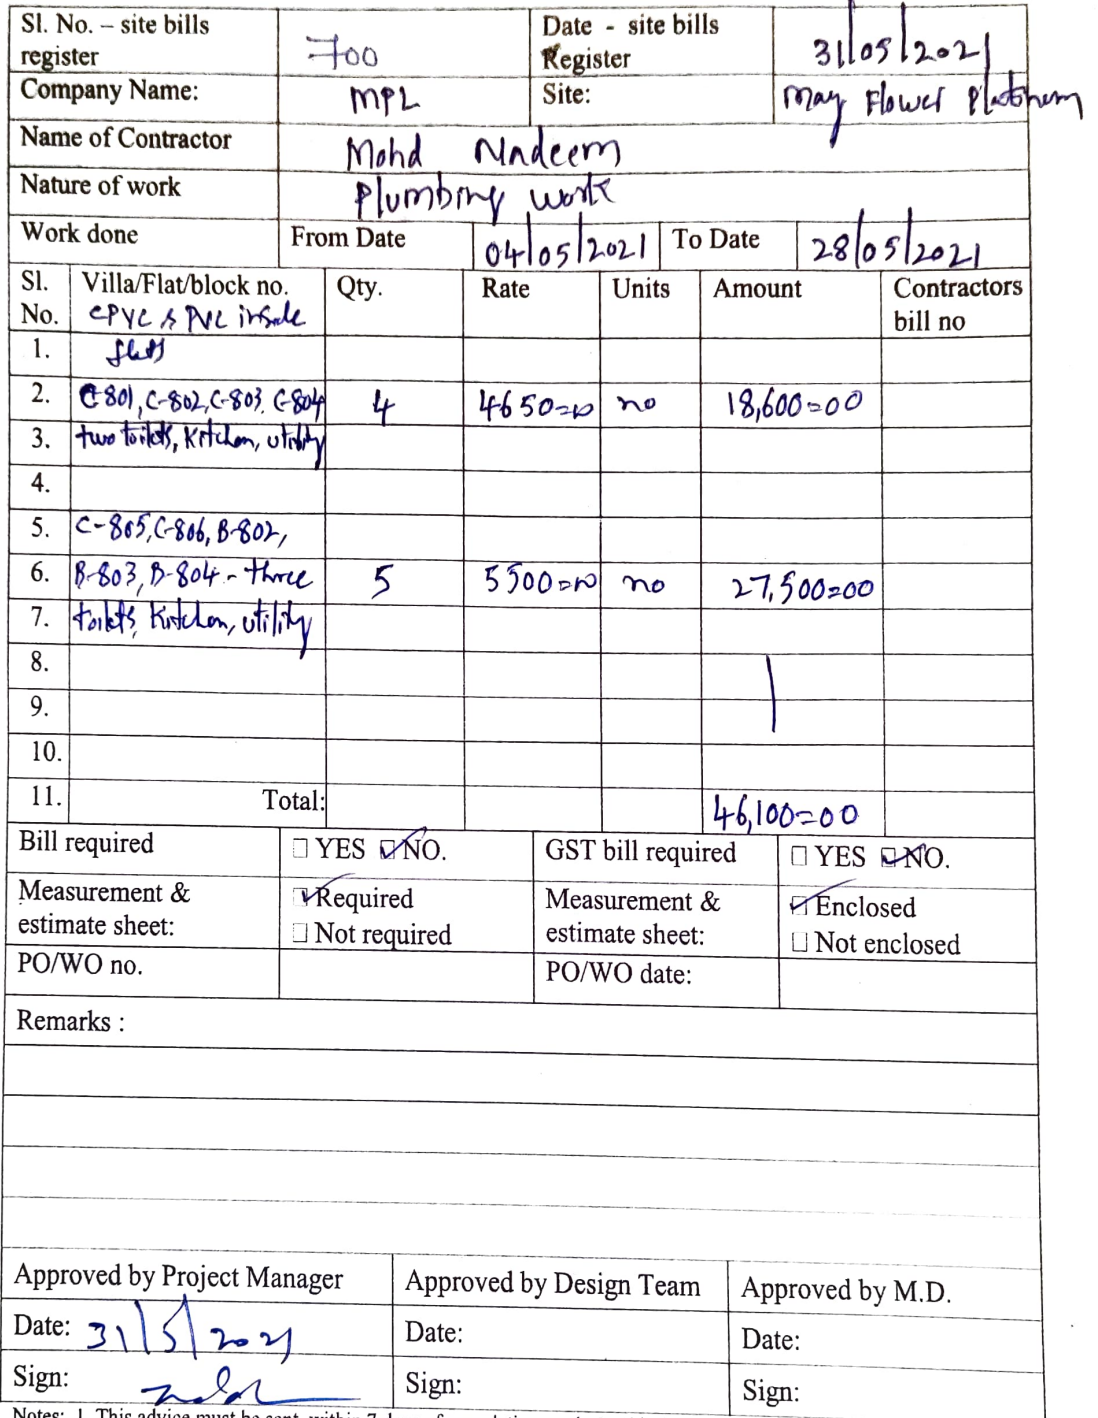 Sl. No. – site bills register 700 Date - site bills Register 31/05/2021
Company Name: MPL Site: May Flower Platinum
Name of Contractor Mohd Nadeem
Nature of work Plumbing work
Work done From Date 04/05/2021 To Date 28/05/2021
Sl. No. Villa/Flat/block no. Qty. Rate Units Amount Contractors bill no
CPVC & PVC inside
1. flats
2. C-801, C-802, C-803, C-804 4 4650=00 no 18,600=00
3. two toilets, Kitchen, utility
4.
5. C-805, C-806, B-802,
6. B-803, B-804 - three 5 5500=00 no 27,500=00
7. toilets, Kitchen, utility
8.
9.
10.
11. Total: 46,100=00
Bill required YES NO. GST bill required YES NO.
Measurement & estimate sheet: Required Not required Measurement & estimate sheet: Enclosed Not enclosed
PO/WO no. PO/WO date:
Remarks :
Approved by Project Manager Approved by Design Team Approved by M.D.
Date: 31/5/2021 Date: Date:
Sign: Sign: Sign: